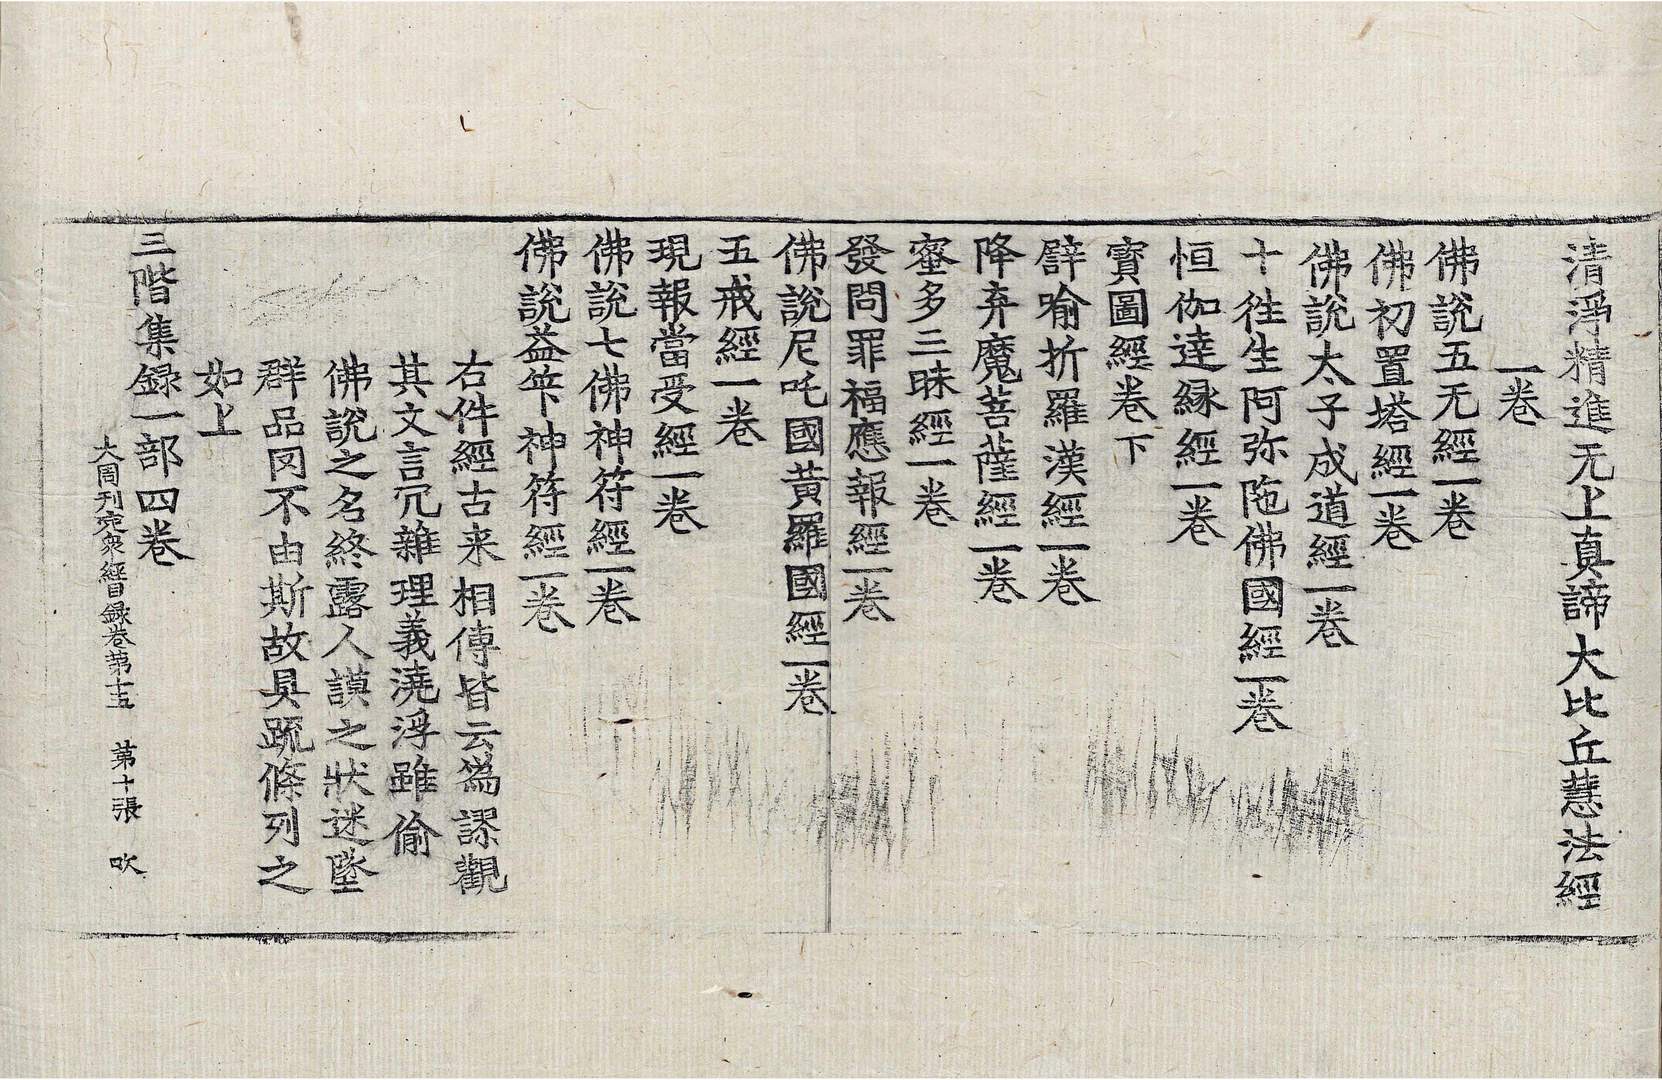 清淨精進无上真諦大比丘慧法經
一卷
佛說五无經一卷
佛初置塔經一卷
佛說太子成道經一卷
十徃生阿弥陁佛國經一卷
恒伽達縁經一卷
寶圖經卷下
譬喻折羅漢經一卷
降弃魔菩薩經一卷
蜜多三昧經一卷
發問罪福應報經一卷
佛說尼吒國黃羅國經一卷
五戒經一卷
現報當受經一卷
佛說七佛神符經一卷
佛說益筭神符經一卷
右件經古来相傳皆云僞謬觀
其文言冗雜理義澆浮雖偷
佛說之名終露人謨之狀迷墜
群品罔不由斯故具䟽條列之
如上
三階集録一部四卷
大周刊定衆經目録卷第十五 第十張 吹